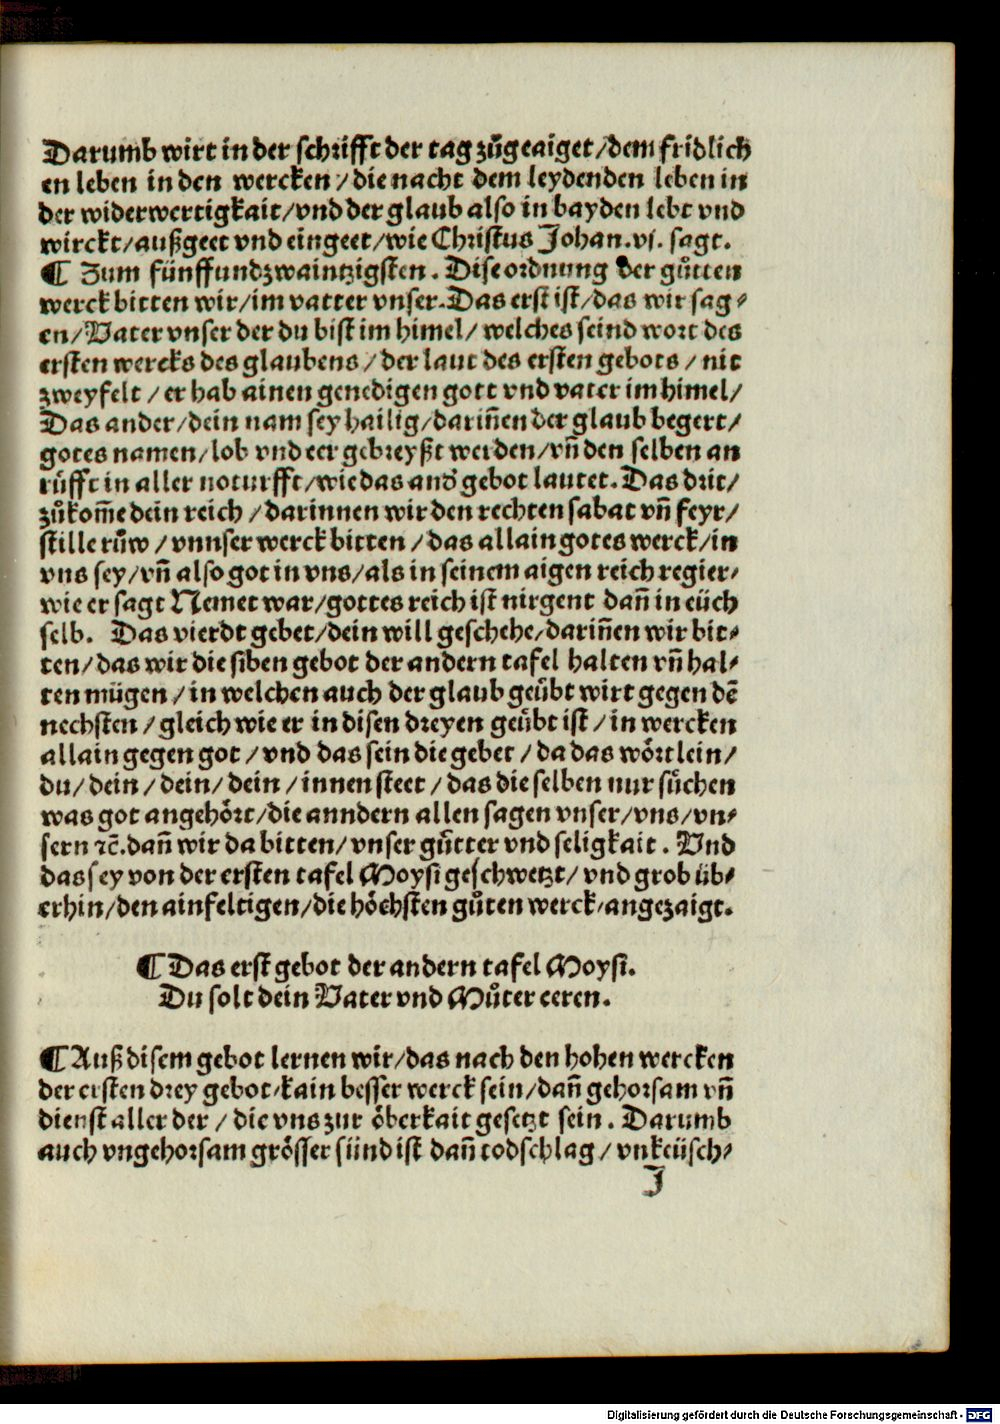 Darumb wirt in der schrifft der tag zůgeaiget/dem fridlich
en leben in den wercken/die nacht dem leydenden leben in
der widerwertigkait/vnd der glaub also in bayden lebt vnd
wirckt/außgeet vnd eingeet/wie Christus Johan.vj. sagt.
¶ Zum fünffundzwaintzigsten. Dise ordnung der gůtten
werck bitten wir/im vatter vnser. Das erst ist/das wir sag⸗
en/Vater vnser der du bist im himel/welches seind wort des
ersten wercks des glaubens/der laut des ersten gebots/nit
zweyfelt/er hab ainen genedigen gott vnd vater im himel/
Das ander/dein nam sey hailig/dariñen der glaub begert/
gotes namen/lob vnd eer gebreyßt werden/vñ den selben an
růfft in aller noturfft/wie das and̕ gebot lautet. Das drit/
zůkom̃e dein reich/darinnen wir den rechten sabat vñ feyr/
stille růw/vnnser werck bitten/das allain gotes werck/in
vns sey/vñ also got in vns/als in seinem aigen reich regier⸗
wie er sagt Nemet war/gottes reich ist nirgent dañ in eüch
selb. Das vierdt gebet/dein will geschehe/dariñen wir bit⸗
ten/das wir die siben gebot der andern tafel halten vñ hal⸗
ten mügen/in welchen auch der glaub geůbt wirt gegen dē
nechsten/gleich wie er in disen dreyen geůbt ist/in wercken
allain gegen got/vnd das sein die gebet/da das wörtlein/
du/dein/dein/dein/innen steet/das die selben nur sůchen
was got angehört/die anndern allen sagen vnser/vns/vn⸗
sern ꝛc̄.dañ wir da bitten/vnser gůtter vnd seligkait. Vnd
das sey von der ersten tafel Moysi geschwetzt/vnd grob üb⸗
erhin/den ainfeltigen/die höchsten gůten werck/angezaigt.

¶ Das erst gebot der andern tafel Moysi.
Du solt dein Vater vnd Můter eeren.

¶ Auß disem gebot lernen wir/das nach den hohen wercken
der ersten drey gebot/kain besser werck sein/dañ gehorsam vñ
dienst aller der/die vns zur öberkait gesetzt sein. Darumb
auch vngehorsam grösser sünd ist dañ todschlag/vnkeüsch⸗
J
Digitalisierung gefördert durch die Deutsche Forschungsgemeinschaft - DFG